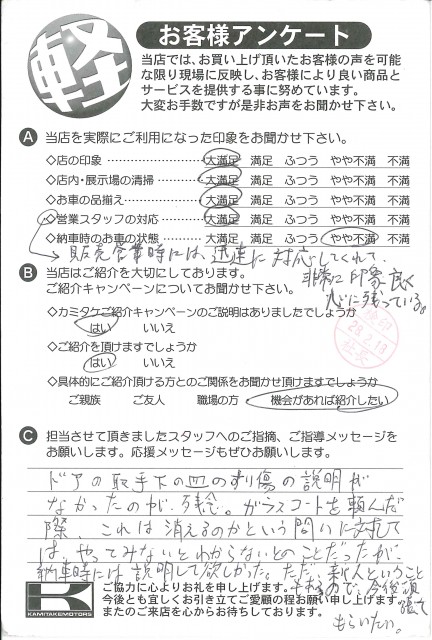 軽
お客様アンケート
当店では、お買い上げ頂いたお客様の声を可能
な限り現場に反映し、お客様により良い商品と
サービスを提供する事に努めています。
大変お手数ですが是非お声をお聞かせ下さい。
A 当店を実際にご利用になった印象をお聞かせ下さい。
◇店の印象 大満足 満足 ふつう やや不満 不満
◇店内・展示場の清掃 大満足 満足 ふつう やや不満 不満
◇お車の品揃え 大満足 満足 ふつう やや不満 不満
◇営業スタッフの対応 大満足 満足 ふつう やや不満 不満
◇納車時のお車の状態 大満足 満足 ふつう やや不満 不満
販売営業時には、迅速に対応してくれて、
非常に印象良く
心に残っている。
B 当店はご紹介を大切にしております。
ご紹介キャンペーンについてお聞かせ下さい。
◇カミタケご紹介キャンペーンのご説明はありましたでしょうか
はい いいえ
28.2.18
◇ご紹介を頂けますでしょうか
はい いいえ
◇具体的にご紹介頂ける方とのご関係をお聞かせ頂けますでしょうか
ご親族 ご友人 職場の方 機会があれば紹介したい
C 担当させて頂きましたスタッフへのご指摘、ご指導メッセージを
お願いします。応援メッセージもぜひお願いします。
ドアの取手下の皿のすり傷の説明が
なかったのが、残念。ガラスコートを頼んだ
際、これは消えるのかという問いに対して
は、やってみないとわからないとのことだったが、
納車時には説明して欲しかった。ただ、新人ということ
もあるので、今後頑
張って
もらいたい。
K
KAMITAKEMOTORS
ご協力に心よりお礼を申し上げます。
今後とも宜しくお引き立てご愛顧の程お願い申し上げます。
またのご来店を心からお待ちしております。